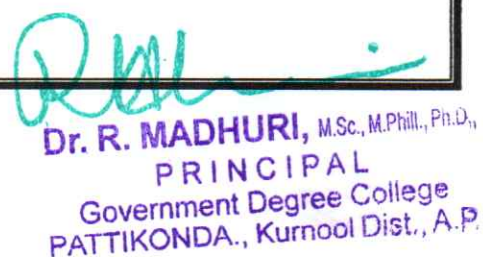 Dr. R. MADHURI, M.Sc., M.Phill., Ph.D.,
PRINCIPAL
Government Degree College
PATTIKONDA., Kurnool Dist., A.P.